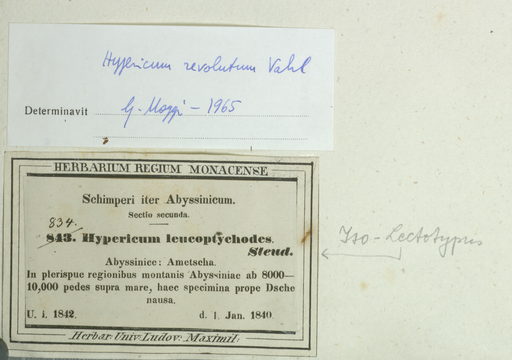 Hypericum revolutum Vahl
Determinavit G. Moggi – 1965
HERBARIUM REGIUM MONACENSE
Schimperi iter Abyssinicum.
Sectio secunda.
834.
843. Hypericum leucoptychodes.
Steud.
Abyssinice: Ametscha.
In plerispue regionibus montanis Abyssiniae ab 8000—
10,000 pedes supra mare, haec specimina prope Dsche
nausa.
U. i. 1842. d. 1. Jan. 1840
Herbar. Univ. Ludov. Maximil.
Iso-Lectotypus